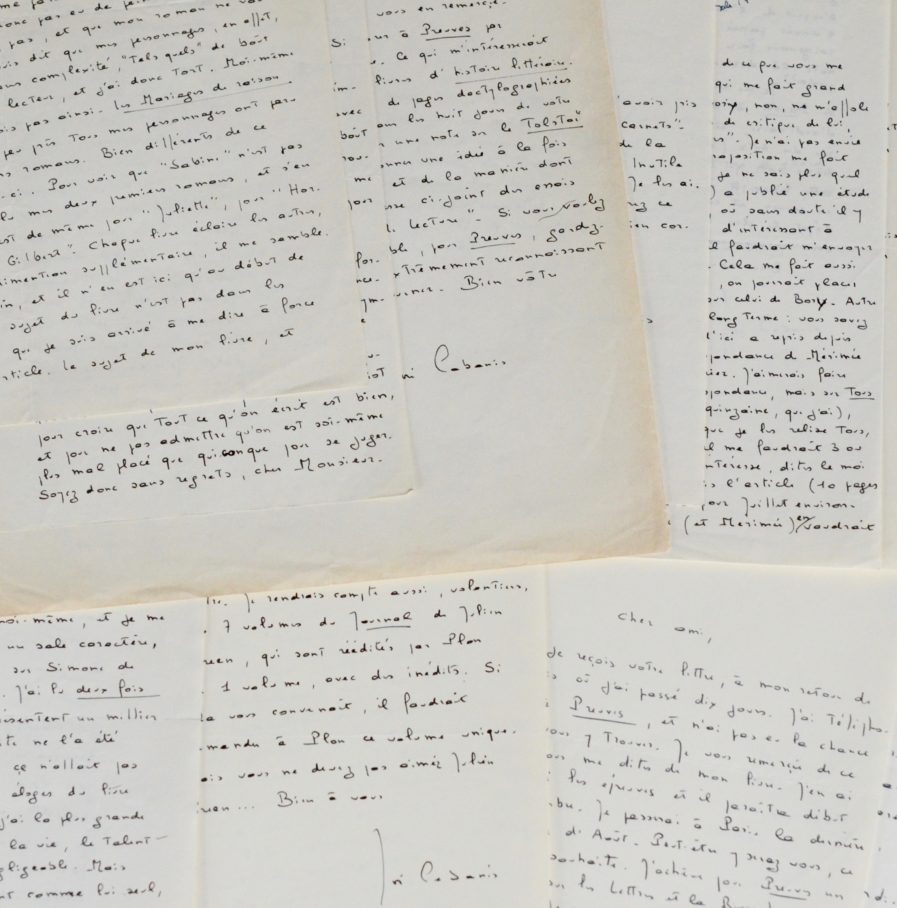 me fa
donc pas eu de pein
pas, et que mon roman ne vo
vis dit que mes personnages, en effet,
ur complexité, "Tels quels" de bout
lecteur, et j'ai donc tort. Moi-même
is pas ainsi. Les Mariages de raison
peu près tous mes personnages ont paru
s romans. Bien différents de ce
-ci. Pour voir que "Sabine" n'est pas
lu mes deux premiers romans, et s'en
est de même pour "Juliette", pour "Hor.
Gilbert". Chaque livre éclaire les autres,
dimention supplémentaire, il me semble.
in, et il n'en est ici qu'au début de
sujet du livre n'est pas dans les
que je suis arrivé à me dire à force
rticle. Le sujet de mon livre, et
pour croire que tout ce qu'on écrit est bien,
et pour ne pas admettre qu'on est soi-même
plus mal placé que quiconque pour se juger.
Soyez donc sans regrets, cher Monsieur.
Si
avec
bout
me
vous en remerci
ur à Preuves par
. Ce qui m'intéresserait
livres d'histoire littéraire.
de pages dactylographiées
ou les huit jours de votre
une note sur le Tolstoï
onner une idée à la fois
et de la manière dont
sse ci-joint des envois
Lecture". Si vous voulez
ble, pour Preuves, gardez-
xtrêmement reconnaissant
Bien votre
Cabanis
avoir pris
carnets".
de la
Inutile
Je les ai.
rez ce
ien cor.
de ce que vous me
qui me fait grand
, non, ne m'affole
de critique de lui,
". Je n'ai pas envie
roposition me fait
je ne sais plus quel
) a publié une étude
, où sans doute il y
d'intéressant à
il faudrait m'envoyer
. Cela me fait aussi
, on pourrait placer
ur celui de Bory. Autre
long terme : vous savez
'ici a repris depuis
pondance de Mérimée
ier. J'aimerais faire
spondance, mais sur Tous
quinzaine, que j'ai),
que je les relise tous,
il me faudrait 3 ou
ntéresse, dites le moi
s l'article (10 pages
pour Juillet environ.
(et Mérimée) en vaudrait
moi-même, et je me
un sale caractère,
sur Simone de
. J'ai lu deux fois
résentent un millier
te ne l'a été
ça n'allait pas
éloges du livre
j'ai la plus grande
la vie, le talent
gligeable. Mais
nt comme lui seul,
re. Je rendrais compte aussi, volontiers,
7 volumes du Journal de Julien
reen, qui sont réédités par Plon
1 volume, avec des inédits. Si
la vous convenait, il faudrait
mander à Plon ce volume unique.
ais vous ne devez pas aimer Julien
reen... Bien à vous
Cabanis
Cher ami,
Je reçois votre lettre, à mon retour de
s où j'ai passé dix jours. J'ai télépho-
Preuves, et n'ai pas eu la chance
vous y trouver. Je vous remercie de ce
ous me dites de mon livre. J'en ai
les épreuves et il paraîtra début
bre. Je passerai à Paris la dernière
d'Août. Peut-être y serez vous, ce
souhaite. J'achève pour Preuves un
ur les Lettres et la